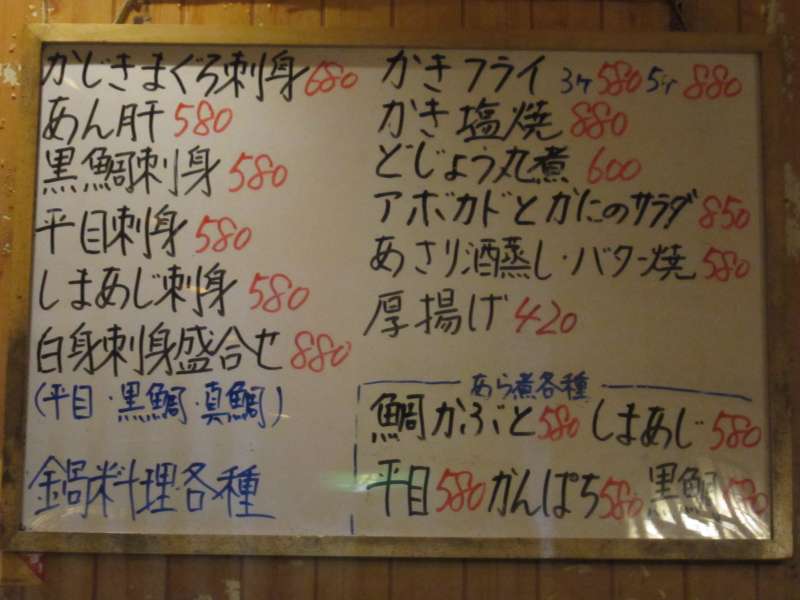 かじきまぐろ刺身 680
あん肝 580
黒鯛刺身 580
平目刺身 580
しまあじ刺身 580
白身刺身盛合せ 880
(平目・黒鯛・真鯛)
鍋料理各種
かきフライ 3ヶ580 5ヶ880
かき塩焼 880
どじょう丸煮 600
アボカドとかにのサラダ 850
あさり酒蒸し・バター焼 580
厚揚げ 420
あら煮各種
鯛かぶと580 しまあじ580
平目580 かんぱち580 黒鯛